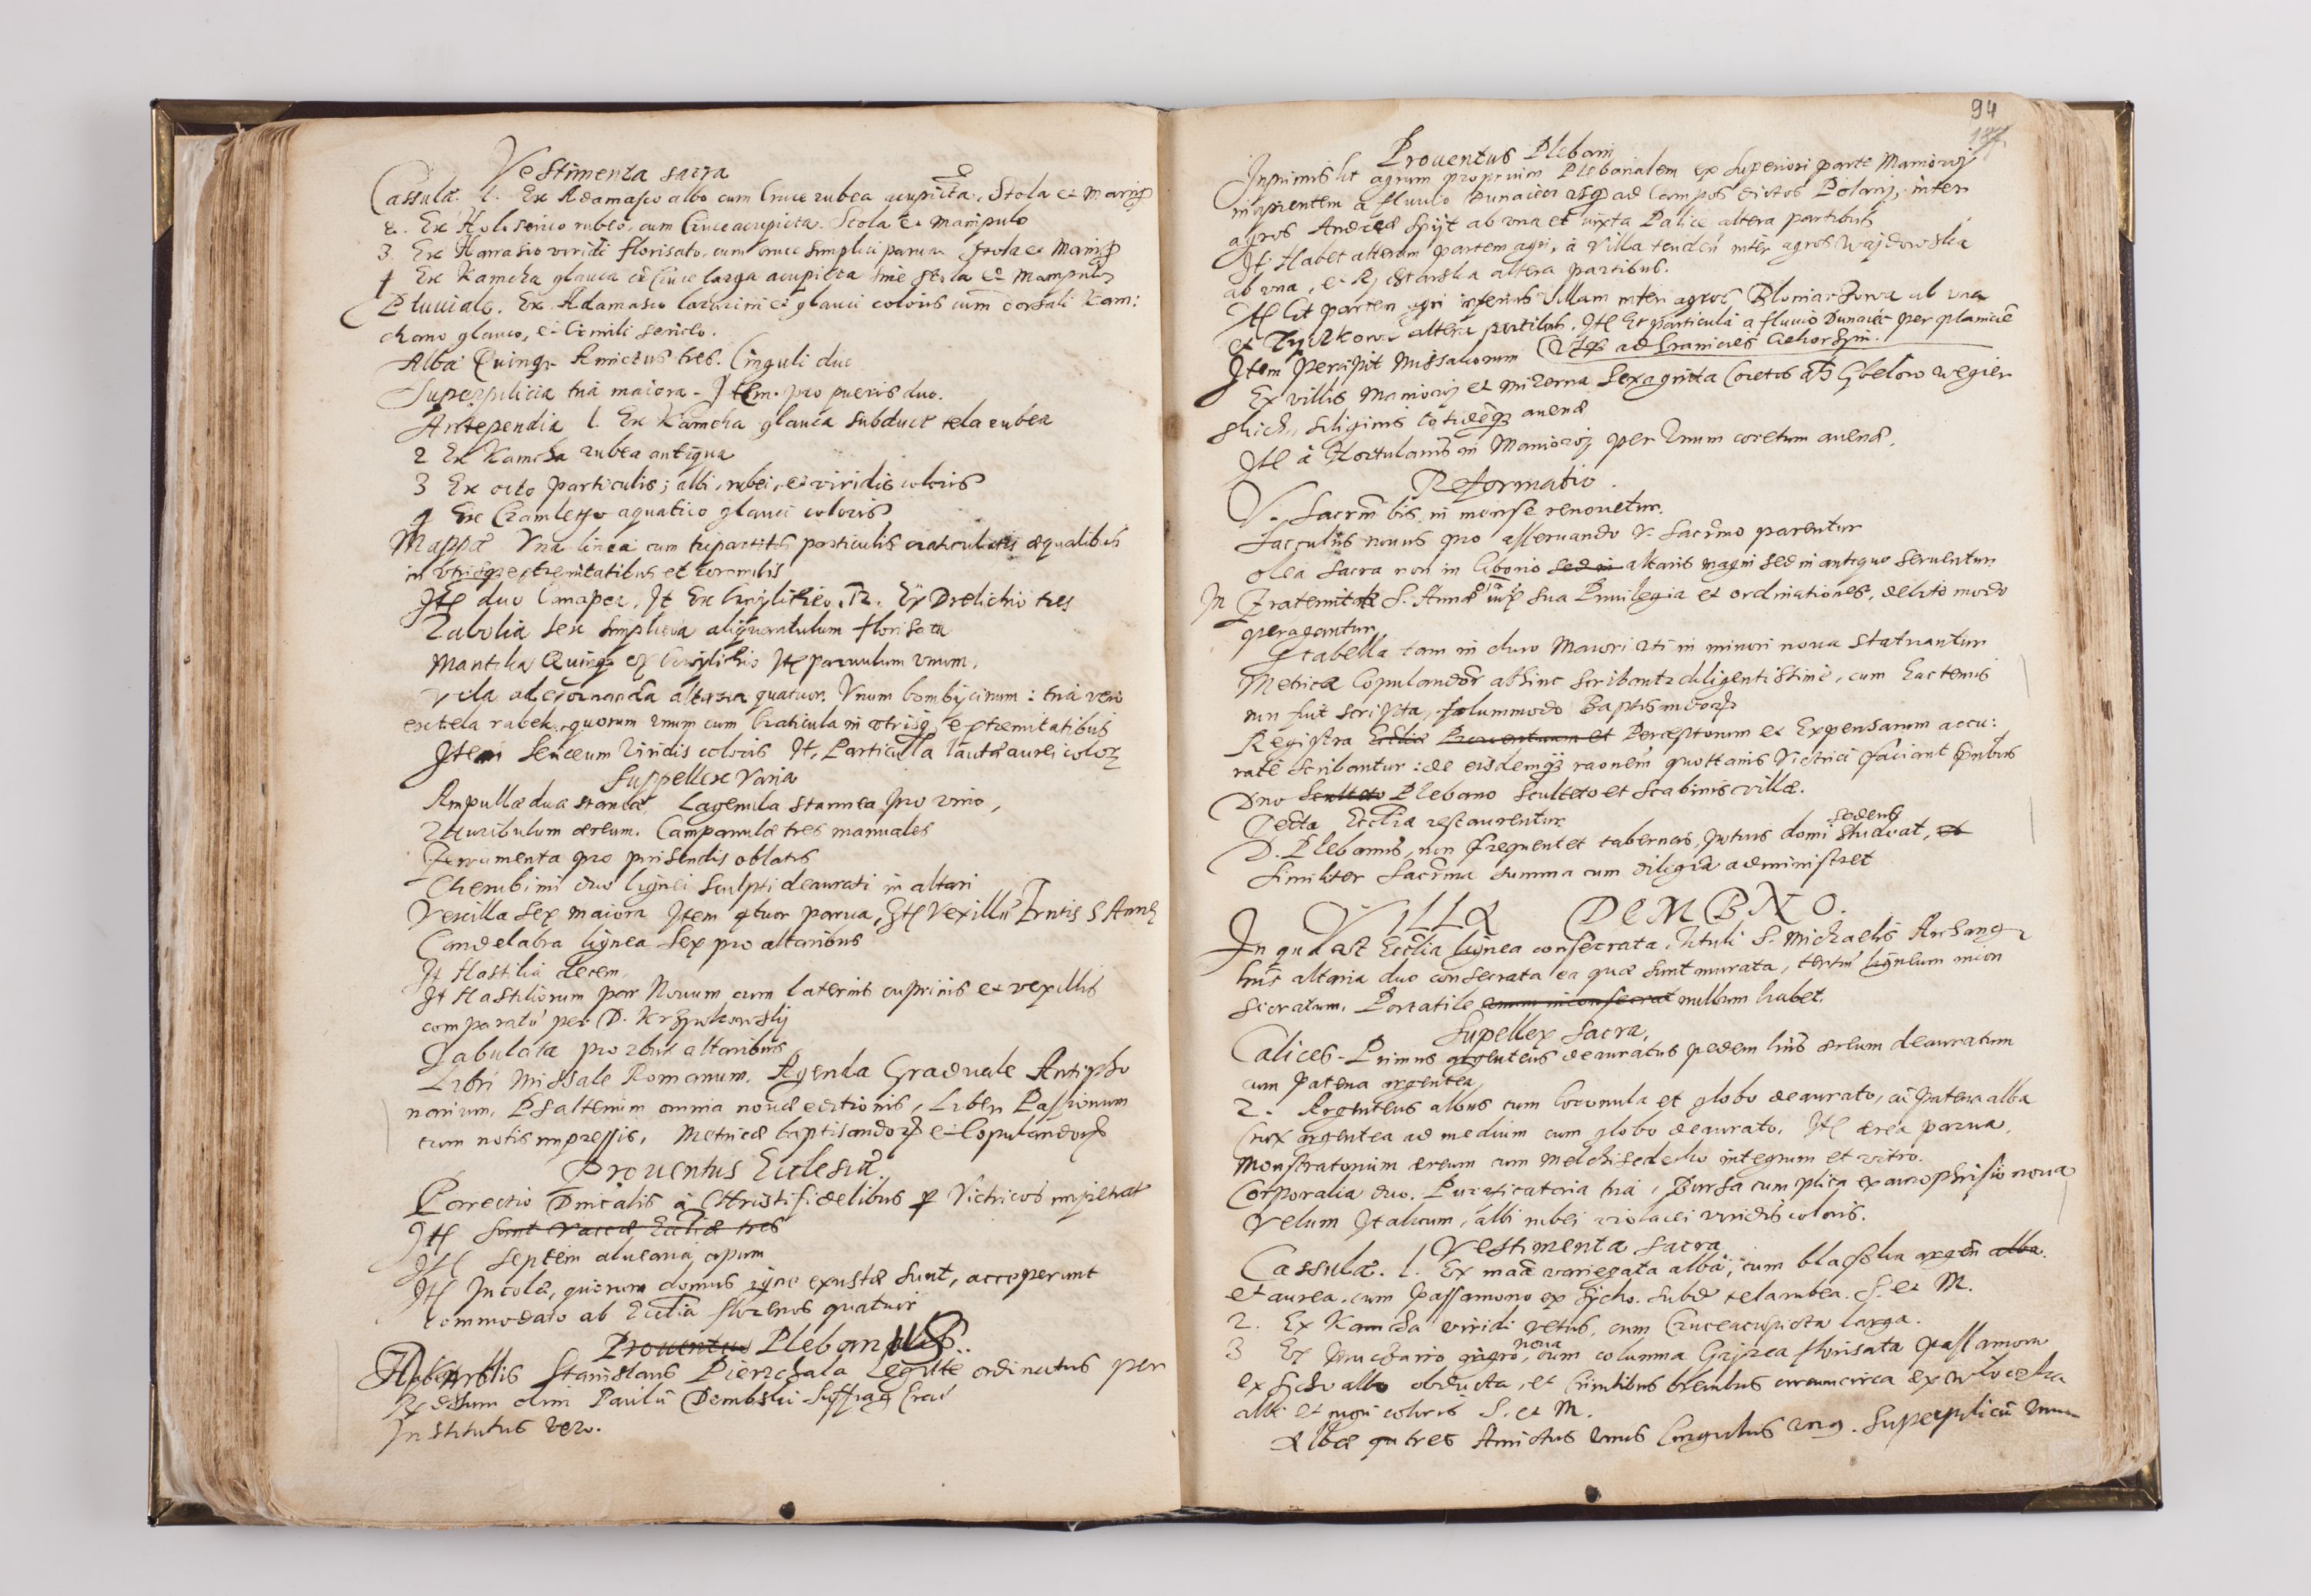 Vestimenta sacra
Cassulæ. 1. Ex Adamasco albo cum Cruce rubea acupicta, Stola et Manip
2. Ex Holoserico rubeo, cum Cruce acupicta. Stola et Manipulo
3. Ex Harrasio viridi florisato, cum cruce simplici parua Stola et Manip
4 Ex Kamcha glauca cū Cruce larga acupicta sine Stola et Manipulo
Pluuiale. Ex Adamasco et glauci coloris cum dorsali Kam:
chano glauco, et simili serico.
Alba Quinq. Amictus tres. Cinguli duo
Superpilicia tria maiora. Item pro pueris duo.
Antependia 1. Ex Kamcha glauca subduct tela rubea
2 Ex Kamcha rubea antiqua
3 Ex octo particulis; albi, rubei, et viridis coloris
4 Ex aquatico glauci coloris
Mappæ Vna linea cum tripartitis particulis craticulatis æqualibus
in vtrisque extremitatibus et
Itē duo Canapea. It Ex 12. Ex Drelichio tres
Zabolia sex simplicia aliquantulum florisata
Mantilia Quinq ex Itē paruulum vnum.
Vela ad exornanda altaria quatuor. Vnum bombycinum: tria vero
ex tela rubek, quorum vnum cum Craticula in vtrisq extremitatibus
Item Sericeum Viridis coloris It. Particula aurei color
Suppellex Varia
Ampullæ duæ staneæ Lagenula stannea pro vino,
Thuribulum æreum. Campanulæ tres manuales
Ferramenta pro pinsendis oblatis
Cherubimi duo lignei sculpti deaurati in altari
Vexilla sex maiora Item qtuor parua, Itē Vexillū Frntis S Annæ
Candelabra lignea Sex pro altaribus
It Hastilia decem
It Hastiliorum par Nouum cum laternis cuprinis et vexillis
comparatū per D. Krzywkowskij
Tabulata pro 2bus altaribus
Libri Missale Romanum. Agenda Graduale Antipho
narium, Psalterium omnia nouæ editionis, Liber Passionum
cum notis impressis, Metricæ baptisandor et Copulandor
Prouentus Ecclesiæ.
Porrectio Dnicalis à Christifidelibus p Victricos impetrat
Itē Sunt vaccæ Eccliæ tres
Itē septem aluearia apum
Itē Incolæ, quorum domus igne exustæ sunt, acceperunt
commodato ab Ecclia florenos quatuor
Prouentus Plebanus.
Hblis Stanislaus Pierzchala Legitte ordinatus per
Rxdssum olim Paulū Dembski Suffrag Crac
Institutus vero.
94
187
Prouentus Plebani
Inprimis hēt agrum proprium Plebanalem ex superiori parte Maniowij
incipientem à fluuio Dunaiecz vsq ad Campos dictos Polany, inter
agros Andreæ ab vna et iuxta Palice altera partibus
It. Habet alteram partem agri, à Villa tendēn inter agros Wajdowska
ab vna, et altera partibus.
Itē hēt partem agri inferius Villam inter agros ab vna
et altera partibus. Itē Et particulā à fluuio Dunaiec per planiciē
Item percipit Missaliorum Vsq ad Granicies
Ex villis Maniowij et Mizerna Sexaginta Coretos
siliginis totidēq auenæ
Itē à Hortulanis in Maniowij per Vnum coretum auenæ.
Reformatio.
V. Sacrm bis in mense renouetur.
Sacculus nouus pro asseruando V. Sacrmo parentur
Olea sacra non in Ciborio sed in altaris magni sed in antiquo seruentur
In Fraternitate S. Annæ oia iux sua Priuilegia et ordinationes, debito modo
peragantur
Scabella tam in choro Maiori vti in minori noua statuantur
Metricæ Copulandor abhinc scribantr diligentissime, cum hactenus
non fuit scripta, solummodo Baptisandor
Registra Eccliæ Prouentuum et Perceptorum et Expensarum accu:
rate scribantur: de eisdemq raonem quottanis Victrici faciant pntibus
Dno Sculteto Plebano Sculteto et Scabinis villæ.
Tecta Eccliæ restaurentur.
D. Plebanus, non frequentet tabernas, potius domi sedens studeat, et
similiter Sacrma summa cum diligēa administret
VILLA DEMBNO.
In qua est Ecclia lignea consecrata, tituli S. Michaelis Archang
hns altaria duo consecrata ea quæ sunt murata, tertiū ligneum incon
secratum. Portatile vnum inconsecrat nullum habet.
Supellex Sacra.
Calices. Primus argenteus deauratus pedem hns æreum deauratum
cum patena argentea
2. Argenteus albus cum Coronula et globo deaurato, cū patena alba
Crux argentea ad medium cum globo deaurato. Itē ærea parua.
Monstratorium æreum cum Melchisedecho integrum et vitro.
Corporalia duo. Purificatoria tria, Bursa cum plica ex aurophrisio noua
Velum Italicum, albi rubei violacei viridis coloris.
Vestimenta sacra
Cassulæ. 1. Ex variegata alba, cum alba.
et aurea, cum passamono ex sycho. subd tela rubea. S. et M.
2. Ex Kamcha viridi vetus, cum Cruce acupicta larga.
3 Ex nigro, noua cum columna florisata passamon
ex sycho albo obducta, et breuibus circumcirca
albi et nigri coloris S. et M.
Albæ tres Amictus vnus Cingulus vng. Superpiliciū vnum